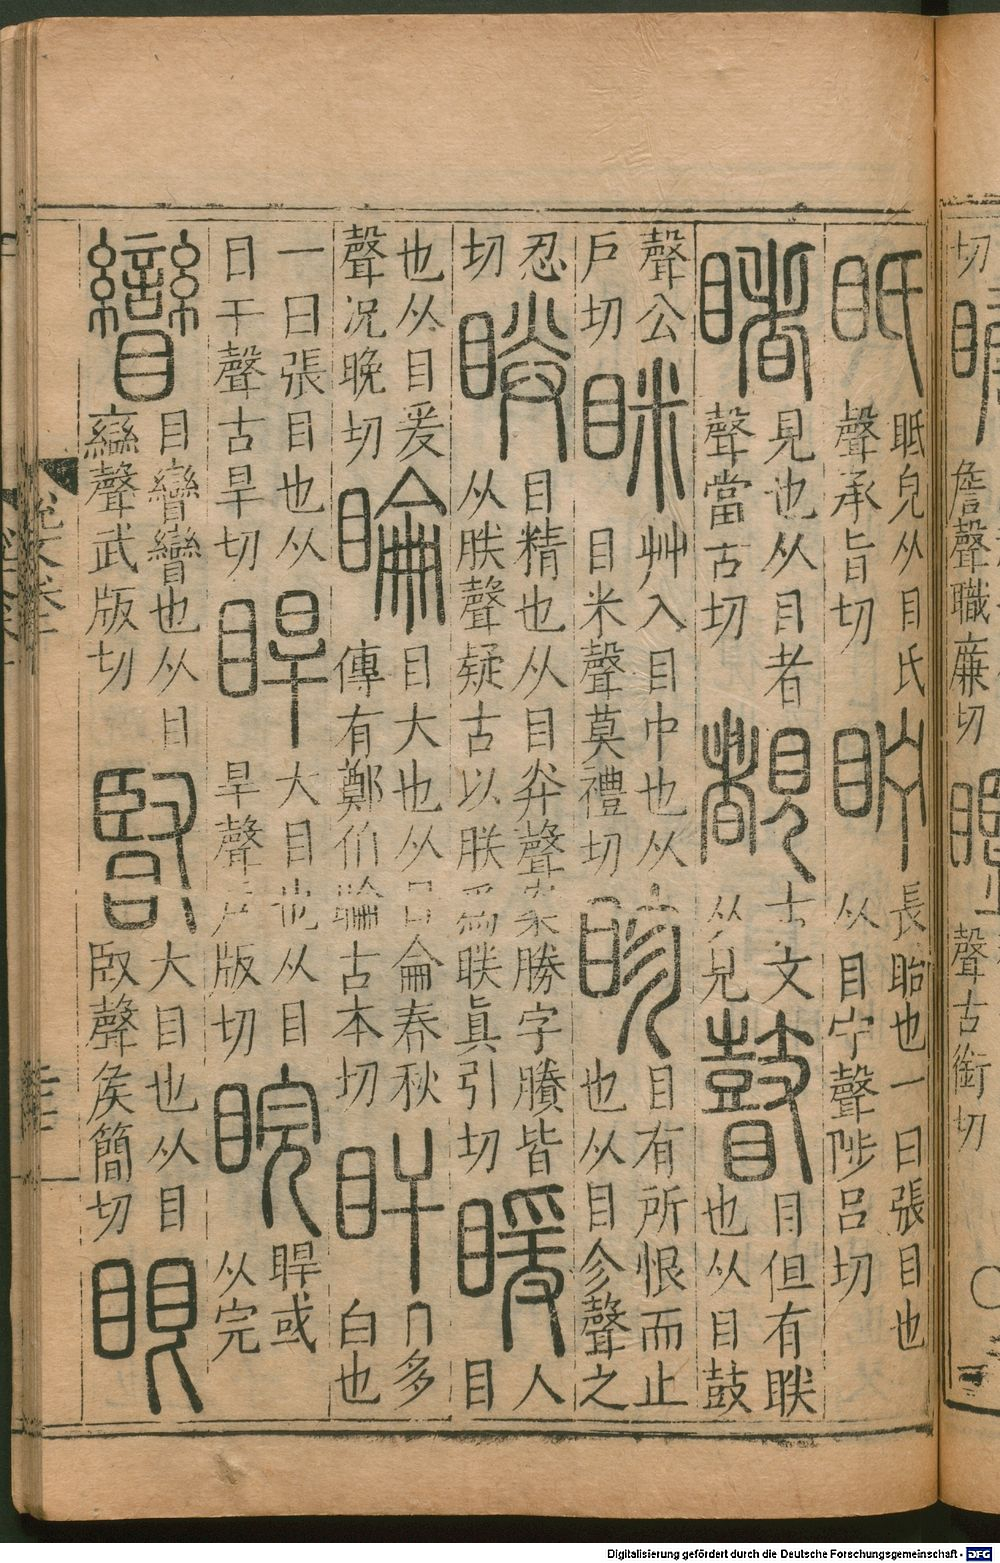 眡
眡皃从目氏
聲承旨切
眝
長眙也一曰張目也
从目宁聲陟呂切
睹
見也从目者
聲當古切
覩
古文
从見
瞽
目但有眹
也从目鼓
聲公
戶切
眯
艸入目中也从
目米聲莫禮切
眕
目有所恨而止
也从目㐱聲之
忍
切
眹
目精也从目灷聲案勝字賸皆
从朕聲疑古以朕爲眹眞引切
䁔
人
目
也从目爰
聲況晚切
睔
目大也从目侖春秋
傳有鄭伯睔古本切
盰
目多
白也
一曰張目也从
日干聲古旱切
睅
大目也从目
旱聲戶版切
睆
睅或
从完
矕
目矕矕也从目
䜌聲武版切
䁂
大目也从目
臤聲侯簡切
眼
切
詹聲職廉切
聲古銜切
Digitalisierung gefördert durch die Deutsche Forschungsgemeinschaft - DFG